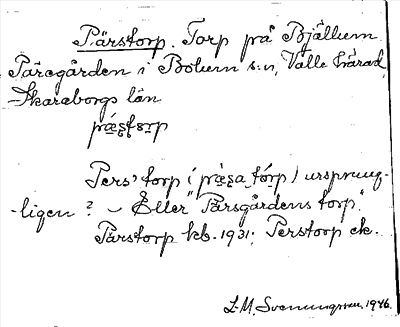 Pärstorp. Torp på Bjällum
Päregården i Bolum s:n, Valle härad,
Skaraborgs län
Pers' torp ( ) ursprung-
-ligen? - Eller "Pärsgårdens torp".
Pärstorp kb. 1931; Perstorp ek.
L-M. Svenungsson. 1946.